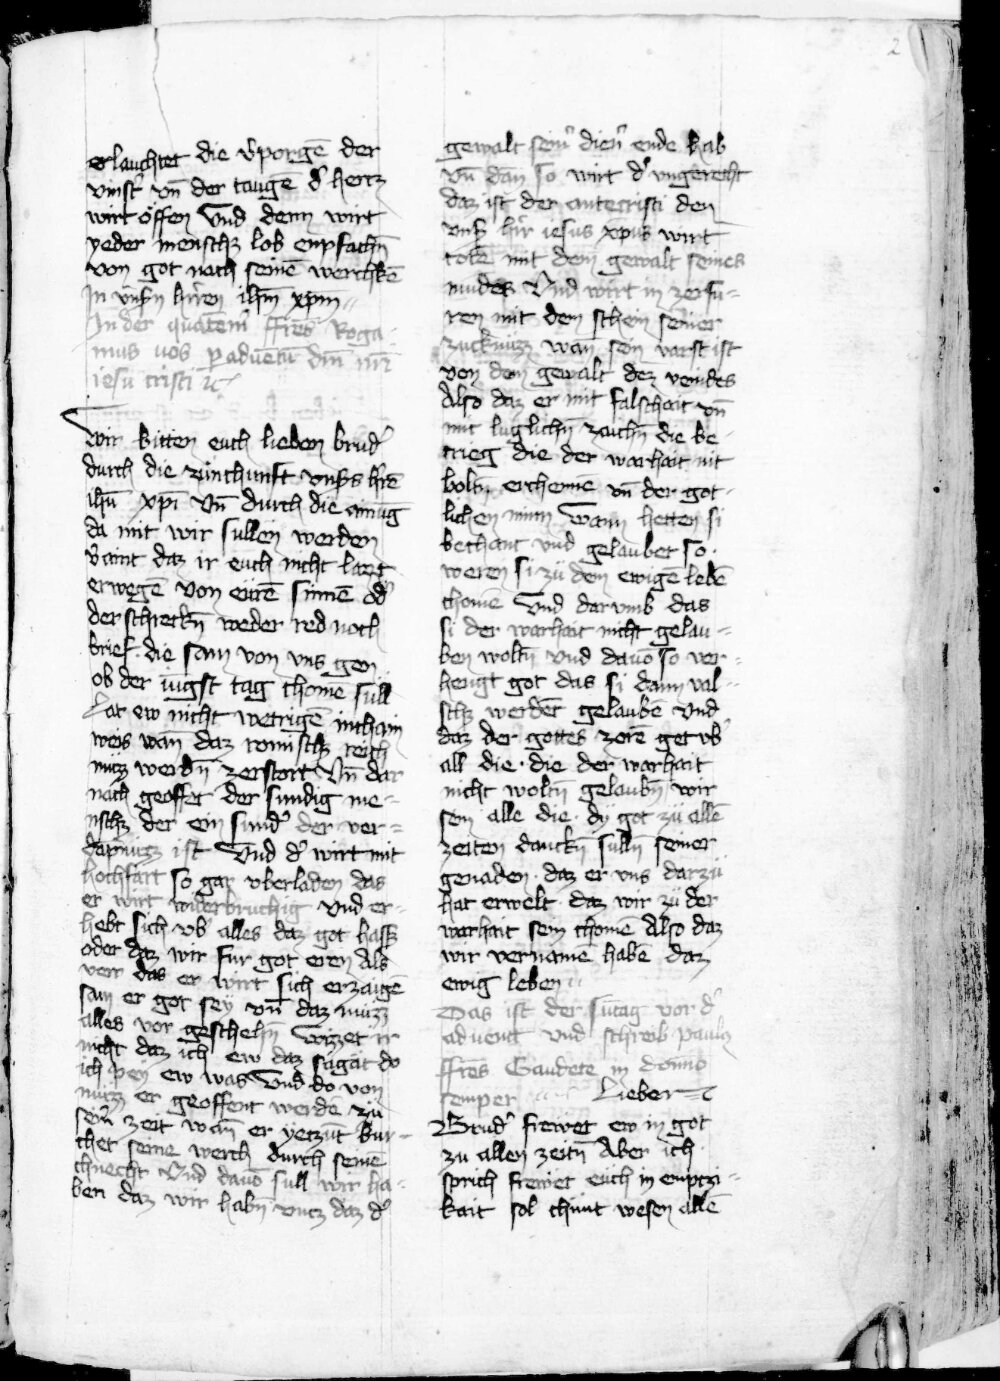 2
erlauchtet die v̾porgē der
vinst̾ vn̄ der taugē d̾ hertz
wirt offen Vnd denn wirt
yeder mensch lob enpfachn̄
von got nach seinē werchkē
In vnsn̄ hr̄ren ihm̄ xpm̄
In der quatem̄ ffres Roga
mus vos p aduentū dn̄i nr̄i
iesu cristi
Wir bitten euch lieben brud̾
durch die zuͦnchunft vnsers hr̄ē
ihū xpi Vn̄ durch die ainug
da mit wir sullen werden
v̾aint daz ir euch nicht lazt
erwegē von eurē sinnē od̾
derschreckn̄ weder red noch
brief die sam von vns gen
ob der iūgst tag chomē sull
Lat ew nicht betrigē inchain
weis wan̄ daz romisch reich
muz werdn̄ zerstort Vn̄ dar
nach geoffet der sundig me-
nsch der ein sund̾ der ver-
dapnuzz ist Vnd d̾ wirt mit
hochfart so gar vberladen das
er wirt widerbruchig vnd er-
hebt sich vb̾ alles daz got haiss
oder daz wir fur got eren Als
verr das er wirt sich erzaigē
sam er got sey vn̄ daz muzz
alles vor geschehn̄ Wizzet ir
nicht daz ich ew daz sagat do
ich pey ew was Vnd do von
muzz er geoffent werdē zu
sein̾ zeit wan̄ er yetzūt bur-
chet seine werch durch seinē
chnecht Vnd dauō sull wir ha-
ben daz wir habn̄ vntz daz d̾
gewalt sein̾ dien̾ ende hab
vn̄ dan so wirt d̾ vngerecht
daz ist der antecristi den
vns̾ h̾r iesus xpus wirt
totē mit dem gewalt seines
mudes Vnd wirt in zerfu-
ren mit dem schein seiner
zuckunizz wan sein varst ist
von dem gewalt dez veindes
Also daz er mit falschait vn̄
mit luglichn̄ zaichn̄ die be-
trieg die der warhait nit
woltn̄ erchenne vn̄ der got-
lichen minn Wann hetten si
bechant vnd gelaubet so
weren si zu dem ewigē lebē
chomē Vnd darumb das
si der warhait nicht gelau-
ben woltn̄ Vnd dauō so ver-
hengt got das si dann val-
sch werdēt gelaubē Vnd
daz der gottes zorē get vb̾
all die die der warhait
nicht woltn̄ gelaubn̄ wir
sein alle die dy got zu allē
zeiten danckn̄ sulln̄ seiner
genaden daz er vns darzu
hat erwelt daz wir zu der
warhait sein chomē Also daz
wir vernamē habē daz
ewig leben
Das ist der sūtag vor d̾
aduent vnd schreib paulus
ffres Gaudete in domīo
semper Lieber
Brud̾ frewet ew in got
zu allen zeitn̄ Aber ich
sprich frewet euch in emptzi-
kait sol chunt wesen allē